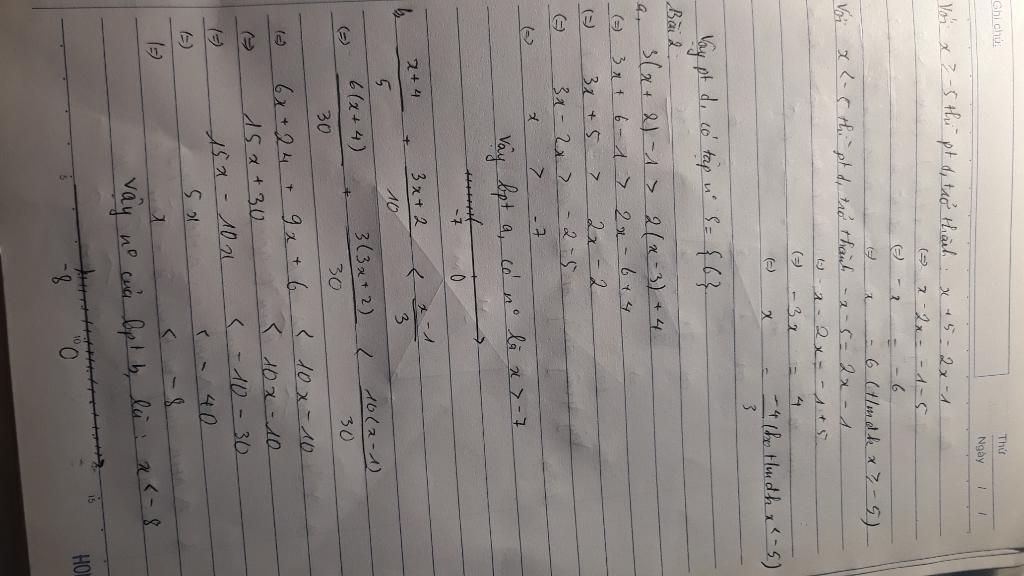 Ghi chú:
Thứ
Ngày / /
Với x ≥ -5 thì pt d, trở thành: x + 5 = 2x - 1
(=) x - 2x = -1 - 5
(=) -x = -6
(=) x = 6 (tmđk x ≥ -5)
Với x < -5 thì pt d, trở thành -x - 5 = 2x - 1
(=) -x - 2x = -1 + 5
(=) -3x = 4
(=) x = -4/3 (ko tmđk x < -5)
Vậy pt d, có tập nº S = {6}
Bài 2
a, 3(x + 2) - 1 > 2(x - 3) + 4
(=) 3x + 6 - 1 > 2x - 6 + 4
(=) 3x + 5 > 2x - 2
(=) 3x - 2x > -2 - 5
(=) x > -7
Vậy bpt a, có nº là x > -7
-7 0
b, (x + 4)/5 + (3x + 2)/10 < (x - 1)/3
(=) 6(x + 4)/30 + 3(3x + 2)/30 < 10(x - 1)/30
(=) 6x + 24 + 9x + 6 < 10x - 10
(=) 15x + 30 < 10x - 10
(=) 15x - 10x < -10 - 30
(=) 5x < -40
(=) x < -8
Vậy nº của bpt b, là: x < -8
-8 0
5 10 15